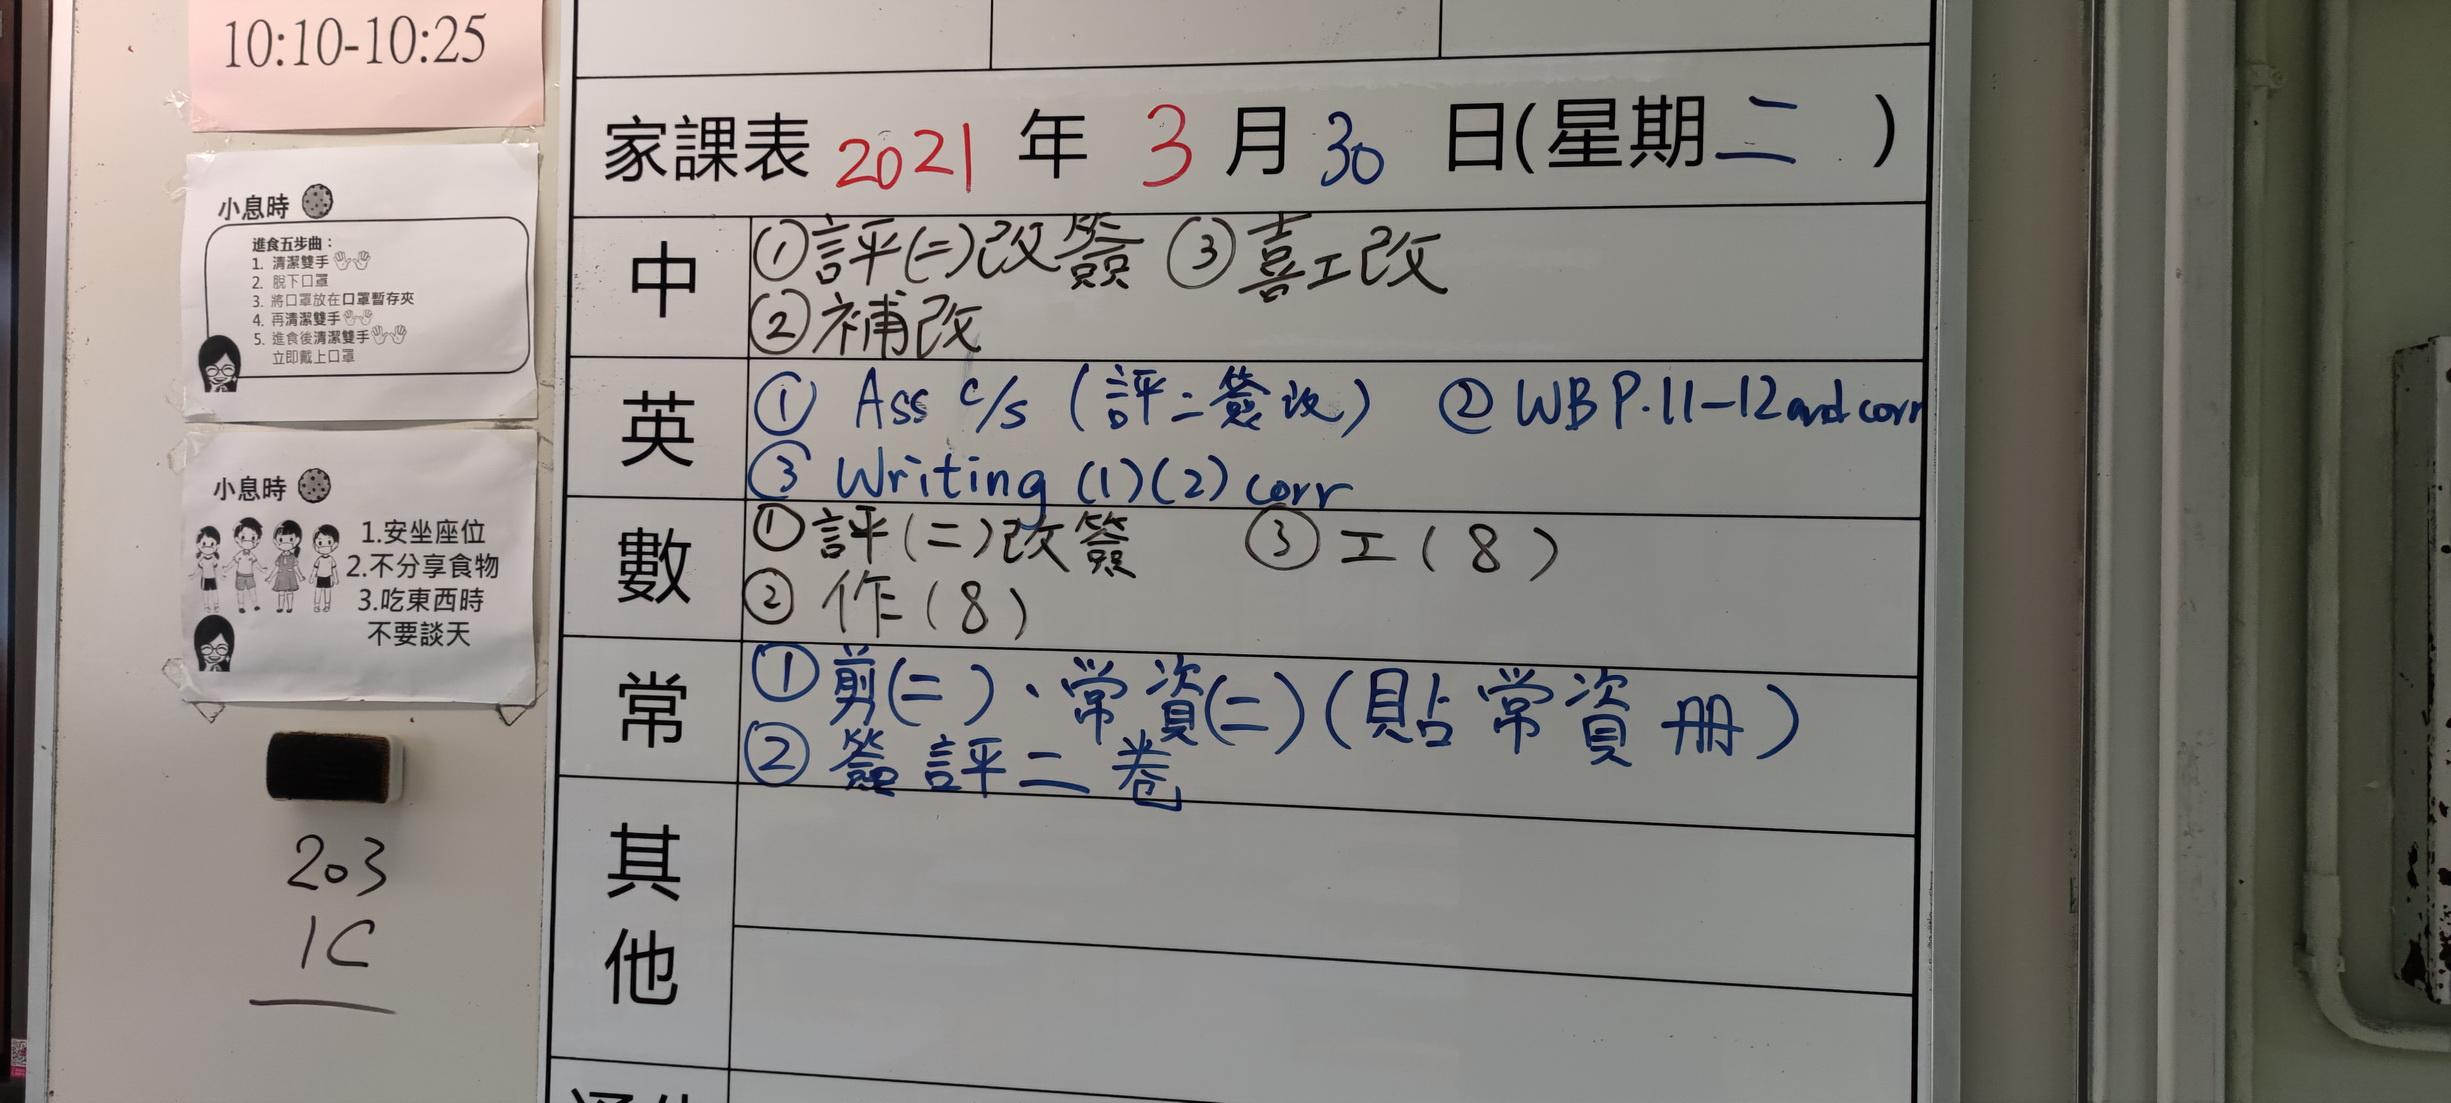 10:10-10:25
小息時
進食五步曲：
1. 清潔雙手
2. 脫下口罩
3. 將口罩放在口罩暫存夾
4. 再清潔雙手
5. 進食後清潔雙手
立即戴上口罩
小息時
1.安坐座位
2.不分享食物
3.吃東西時
不要談天
203
1C
家課表 2021 年 3 月 30 日(星期二 )
中
①評(二)改簽 ③喜工改
②補改
英
① Ass c/s (評二簽改) ② WB P.11-12 and corr
③ Writing (1)(2) corr
數
①評(二)改簽 ③工(8)
② 作(8)
常
①剪(二)、常資(二)(貼常資冊)
②簽評二卷
其他